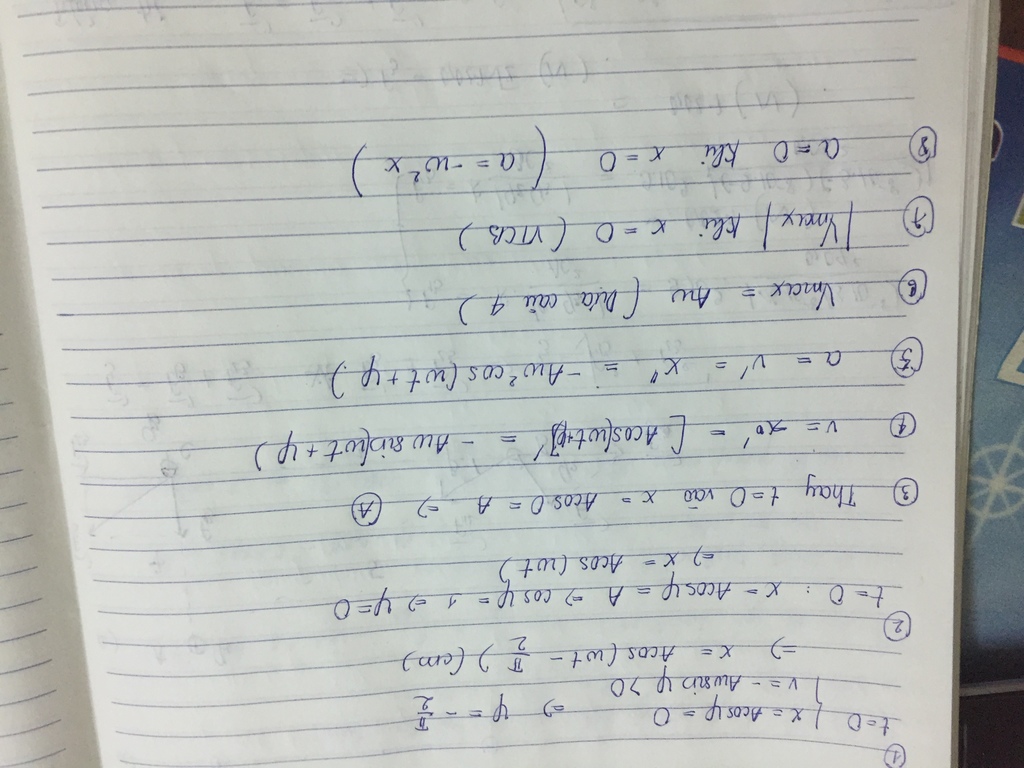 ①
t=0 { x = Acosφ = 0
v = - Aωsinφ > 0 => φ = - π/2
=> x = Acos (ωt - π/2) (cm)
②
t=0 : x = Acosφ = A => cosφ = 1 => φ=0
=> x = Acos (ωt)
③ Thay t=0 vào x = Acos0 = A => Ⓐ
④ v = x' = [Acos(ωt+φ)]' = - Aωsin(ωt+φ)
⑤ a = v' = x" = -Aω²cos(ωt+φ)
⑥ Vmax = Aω (Dựa câu 4)
⑦ |Vmax| khi x=0 (VTCB)
⑧ a=0 khi x=0 (a=-ω²x)